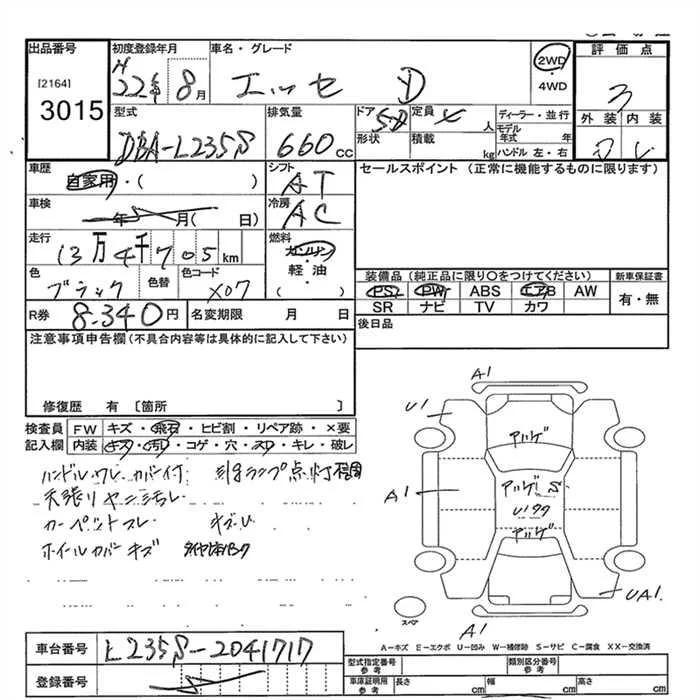 出品番号 初度登録年月 車名・グレード 2WD 評価点
[2164] H22年8月 エッセ D ・4WD 3
3015 型式 排気量 ドア 定員 ディーラー・並行 外装 内装
DBA-L235S 660cc 5D 4人 モデル年式 年
形状 積載 kg ハンドル 左・右
車歴 シフト セールスポイント (正常に機能するものに限ります)
自家用・( ) AT
車検 年 月( 日) 冷房 AC
走行 燃料
13万4千705km ガソリン
色 色替 色コード 軽・油 装備品(純正品に限り○をつけてください) 新車保証書
ブラック X07 ( ) PS PW ABS エアB AW 有・無
SR ナビ TV カワ
R券 8.340円 名変期限 月 日 後日品
注意事項申告欄(不具合内容等は具体的に記入して下さい)
修復歴 有 〔箇所 〕
検査員 FW キズ・飛石・ヒビ割・リペア跡・×要
記入欄 内装 キズ・汚レ・コゲ・穴・スレ・キレ・破レ
ハンドルスレ カバー付
天張りヤニ汚レ
カーペットスレ キズU
ホイールカバーキズ
A1
U1 アルゲ
A1 アルゲ S
アルゲ
UA1
スペア A1
A-キズ E-エクボ U-凹み W-補修跡 S-サビ C-腐食 XX-交換済
車台番号 L235S-2041717 型式指定番号 参考 類別区分番号 参考
登録番号 車庫証明用 参考 長さ cm 幅 cm 高さ cm